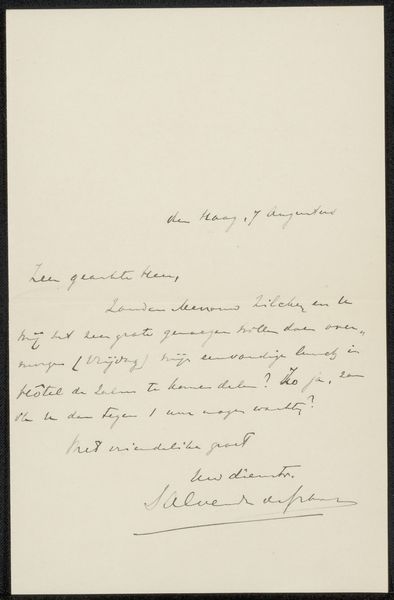 den Haag, 7 Augustus
Zeer geachte Heer,
Zouden Mevrouw Zilcken en U
mij het zeer groote genoegen willen doen over-
morgen (Vrijdag) mijn eenvoudige lunch in
Hôtel de Zalm te komen deelen? Zo ja, zou
ik U dan tegen 1 uur mogen wachten?
Met vriendelijke groet
Uw dienstw.